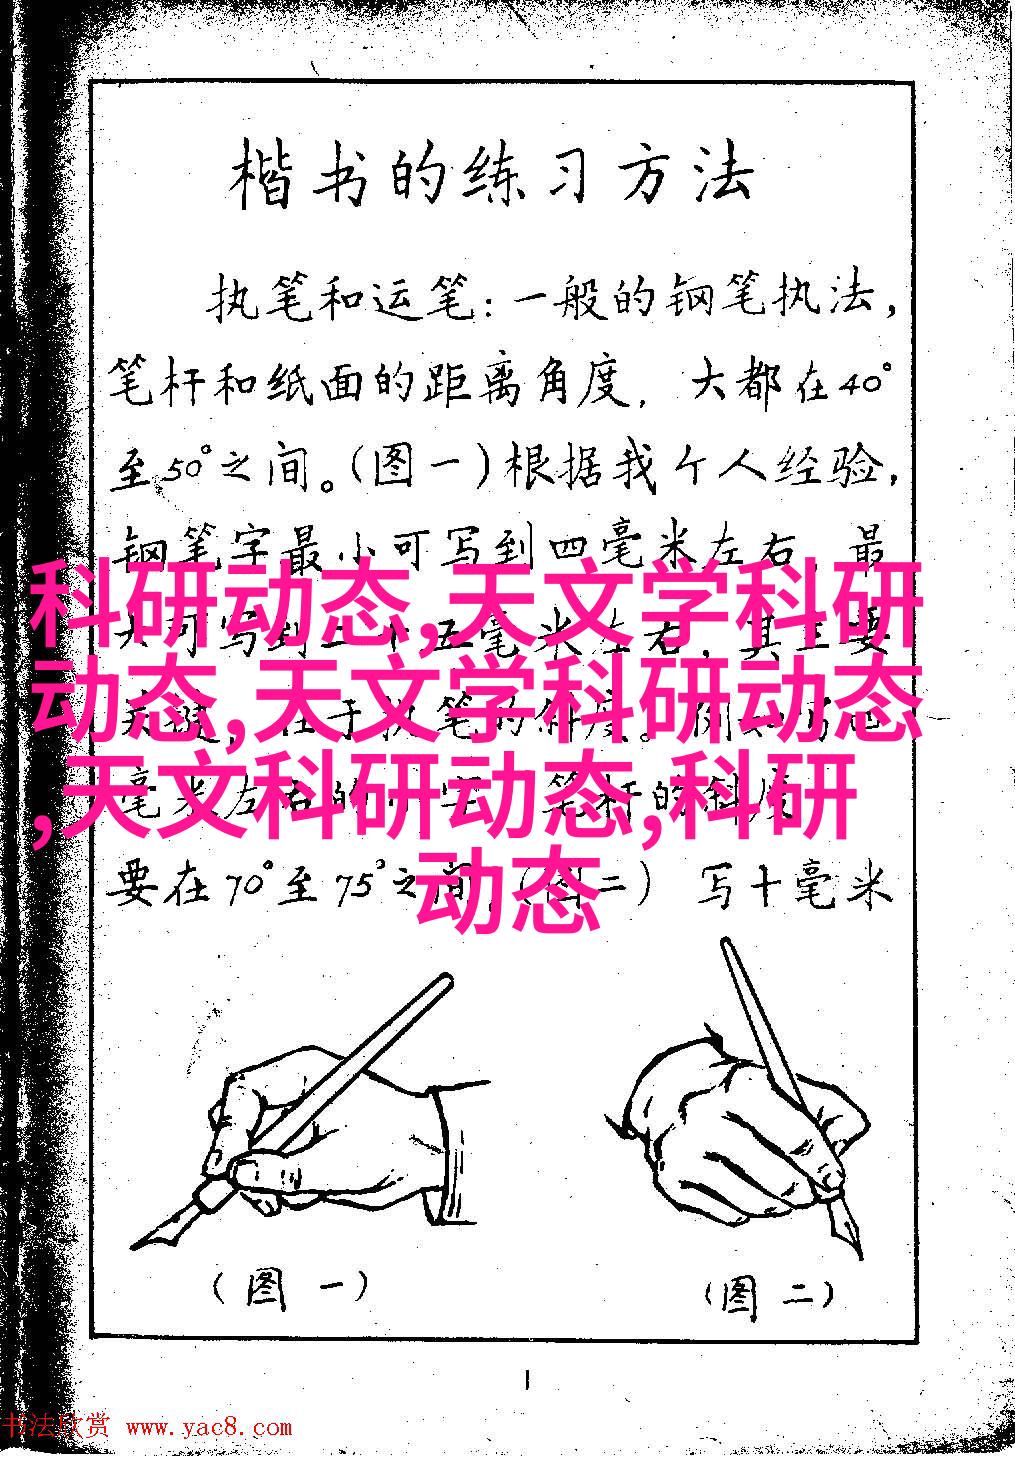 楷书的练习方法
执笔和运笔：一般的钢笔执法，
笔杆和纸面的距离角度，大都在40°
至50°之间。（图一）根据我个人经验，
钢笔字最小可写到四毫米左右，最
科研动态,天文学科研
大可写到二十五毫米左右，其主要
动态,天文学科研动态
,天文科研动态,科研
要在70°至75°之间，（图二）写十毫米
动态
（图一）
（图二）
1
书法欣赏 www.yac8.com